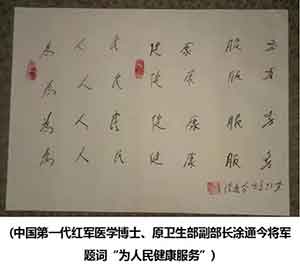 为人民健康服务
为人民健康服务
为人民健康服务
为人民健康服务
涂通今
(中国第一代红军医学博士、原卫生部副部长涂通今将军
题词“为人民健康服务”)